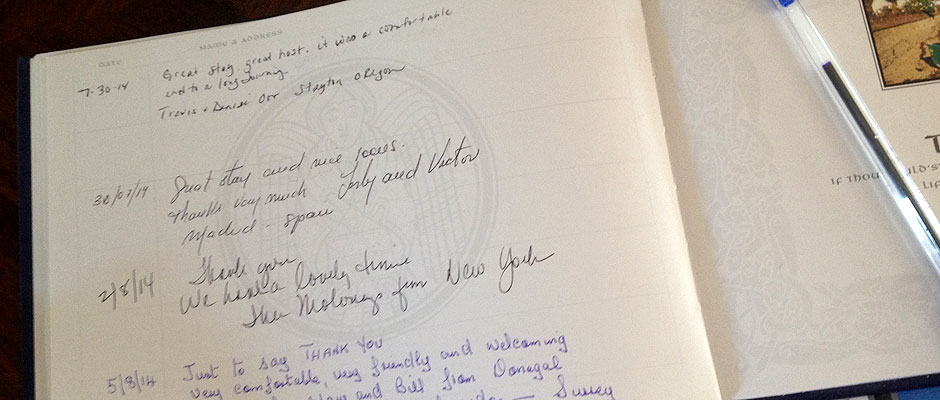 DATE NAME & ADDRESS
7-30-14 Great stay. great host. it was a comfortable
end to a long journey.
Travis + Denise Orr Stayton Oregon
30/07/14 Great stay and nice
Thanks very much and Victor
Madrid - Spain
2/8/14 Thank you
We had a lovely time
The Moloneys from New York
5/8/14 Just to say THANK YOU
Very comfortable, very friendly and welcoming
and Bill from Donegal
Surrey
T
IF THOU
LIF